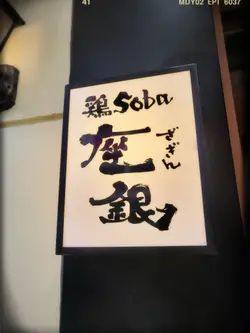 41 MDY02 EPT 6037
鶏Soba
座銀
ざぎん